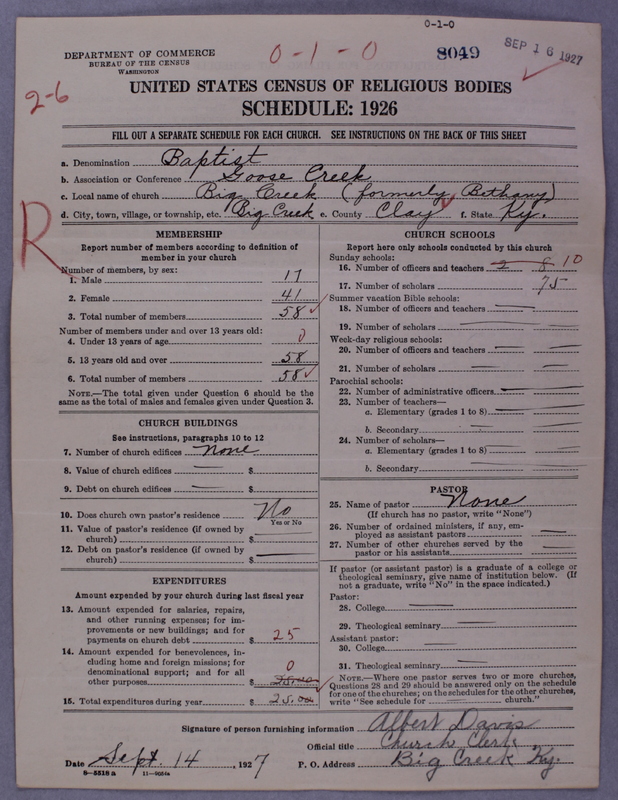 0-1-0
DEPARTMENT OF COMMERCE
BUREAU OF THE CENSUS
WASHINGTON
0-1-0
8049
SEP 16 1927
2-6
UNITED STATES CENSUS OF RELIGIOUS BODIES
SCHEDULE: 1926
FILL OUT A SEPARATE SCHEDULE FOR EACH CHURCH. SEE INSTRUCTIONS ON THE BACK OF THIS SHEET
a. Denomination Baptist
b. Association or Conference Goose Creek
c. Local name of church Big Creek (formerly Bethany)
d. City, town, village, or township, etc. Big Creek e. County Clay f. State Ky.
R
MEMBERSHIP
Report number of members according to definition of
member in your church
Number of members, by sex:
1. Male 17
2. Female 41
3. Total number of members 58
Number of members under and over 13 years old:
4. Under 13 years of age 0
5. 13 years old and over 58
6. Total number of members 58
NOTE.—The total given under Question 6 should be
same as the total of males and females given under Question 3.
CHURCH BUILDINGS
See instructions, paragraphs 10 to 12
7. Number of church edifices None
8. Value of church edifices $
9. Debt on church edifices $
10. Does church own pastor's residence No
Yes or No
11. Value of pastor's residence (if owned by
church) $
12. Debt on pastor's residence (if owned by
church) $
EXPENDITURES
Amount expended by your church during last fiscal year
13. Amount expended for salaries, repairs,
and other running expenses; for im-
provements or new buildings; and for
payments on church debt $ 25
14. Amount expended for benevolences, in-
cluding home and foreign missions; for
denominational support; and for all
other purposes $ 0 25.00
15. Total expenditures during year $ 25.00
CHURCH SCHOOLS
Report here only schools conducted by this church
Sunday schools:
16. Number of officers and teachers 2 8 10
17. Number of scholars 75
Summer vacation Bible schools:
18. Number of officers and teachers
19. Number of scholars
Week-day religious schools:
20. Number of officers and teachers
21. Number of scholars
Parochial schools:
22. Number of administrative officers
23. Number of teachers—
a. Elementary (grades 1 to 8)
b. Secondary
24. Number of scholars—
a. Elementary (grades 1 to 8)
b. Secondary
PASTOR
25. Name of pastor None
(If church has no pastor, write "None")
26. Number of ordained ministers, if any, em-
ployed as assistant pastors
27. Number of other churches served by the
pastor or his assistants
If pastor (or assistant pastor) is a graduate of a college or
theological seminary, give name of institution below. (If
not a graduate, write "No" in the space indicated.)
Pastor:
28. College
29. Theological seminary
Assistant pastor:
30. College
31. Theological seminary
NOTE.—Where one pastor serves two or more churches,
Questions 28 and 29 should be answered only on the schedule
for one of the churches; on the schedules for the other churches,
write "See schedule for church."
Signature of person furnishing information Albert Davis
Official title Church Clerk
Date Sept. 14, 1927 P. O. Address Big Creek Ky.
8—5518 a 11—9054a